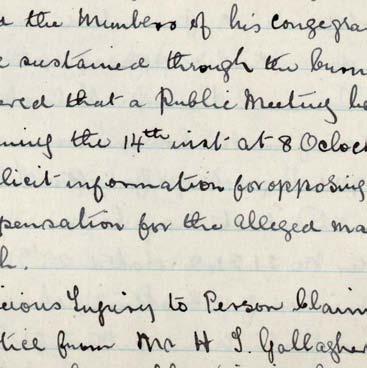 the Members of his congegra
sustained through the burn
ered that a Public Meeting be
ning the 14th inst at 8 Oclock
licit information for opposing
pensation for the alleged ma
h.
icious Injury to Person Claim
tice from Mr H J. Gallagher